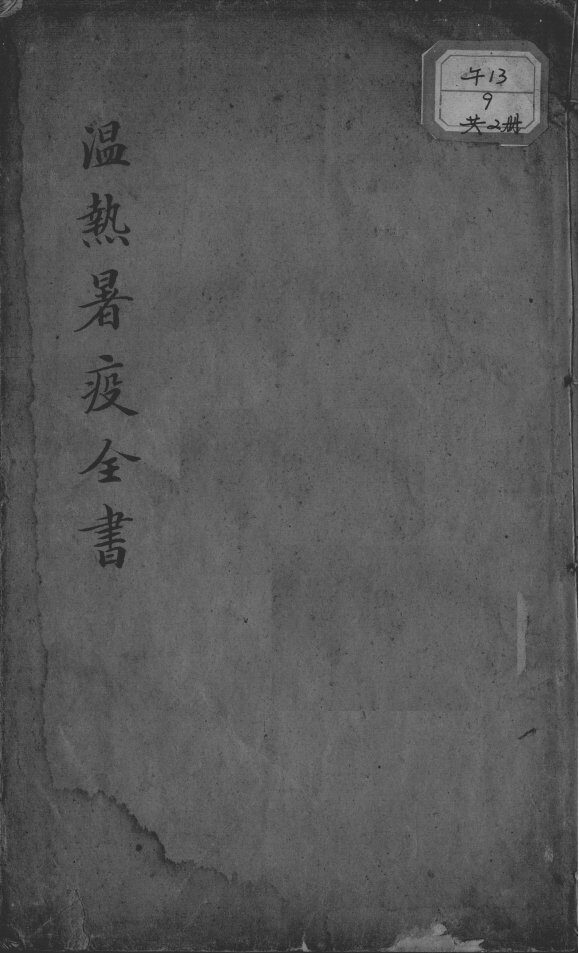 温熱暑疫全書
午13
9
共2册